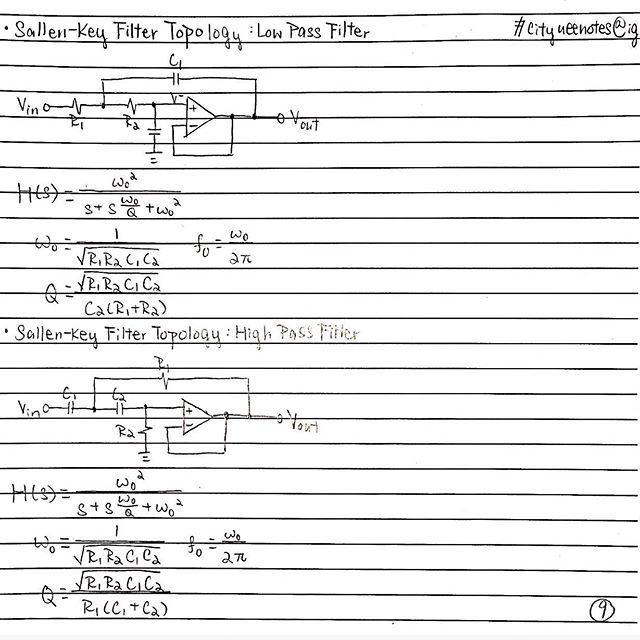 • Sallen-Key Filter Topology: Low Pass Filter #cityueenotes@ig
C1
Vin R1 R2 V- + - Vout
H(s) = ω0² / (s + s ω0/Q + ω0²)
ω0 = 1 / √(R1R2C1C2) f0 = ω0 / 2π
Q = √(R1R2C1C2) / C2(R1+R2)
• Sallen-Key Filter Topology: High Pass Filter
R1
Vin C1 C2 + - Vout
R2
H(s) = ω0² / (s + s ω0/Q + ω0²)
ω0 = 1 / √(R1R2C1C2) f0 = ω0 / 2π
Q = √(R1R2C1C2) / R1(C1+C2)
9